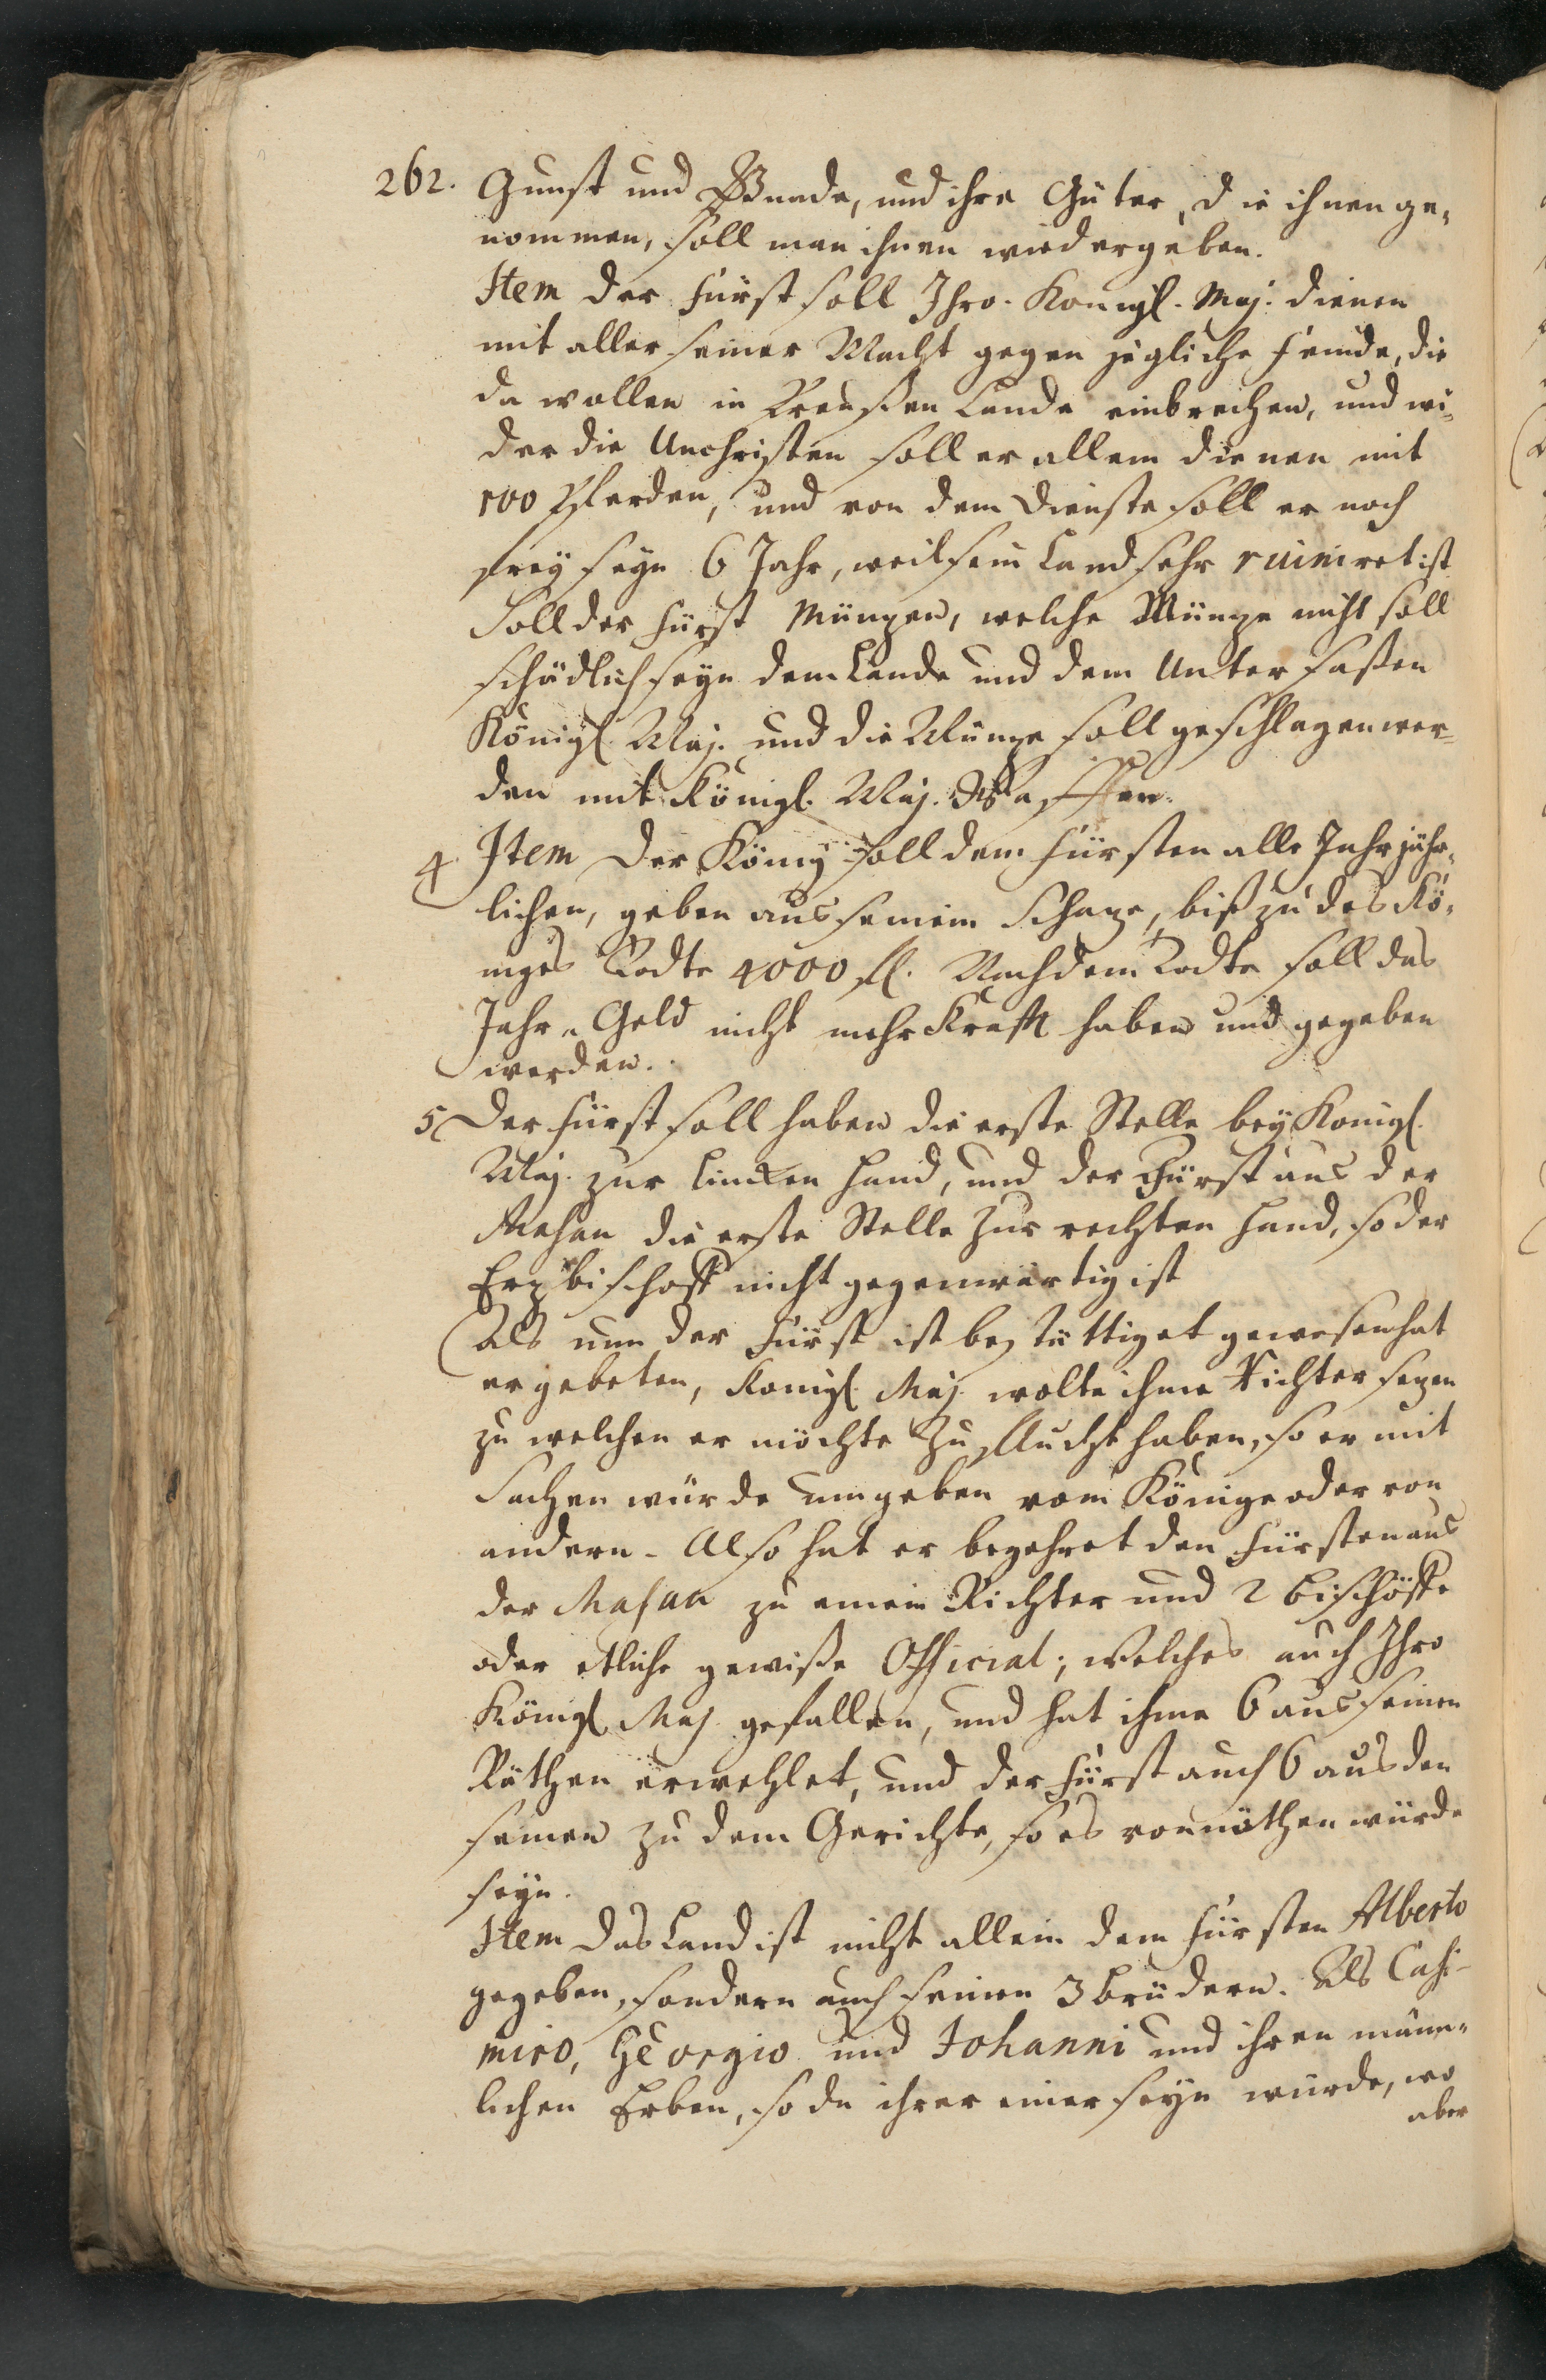 262. Gunst und Gnade, und ihre Güter, die ihnen ge-
nommen, soll man ihnen wiedergeben.
Item der Fürst soll Ihro. Konigl. Maj. dienen
mit aller seiner Macht gegen jegliche Feinde, die
da wollen in Preußen Lande einbrechen, und wi-
der die Unchristen soll er allein dienen mit
100 Pferden, und von dem Dienste soll er noch
frey seyn 6 Jahr, weil sein Land sehr ruiniret ist
Soll der Fürst Münzen, welche Münze nicht soll
schädlich seyn dem Lande und dem Untersaßen
Königl Maj. und die Münze soll geschlagen wer-
den mit Königl. Maj. Waffen.
4 Item Der König soll dem Fürsten alle Jahr jähr-
lichen, geben aus seinem Schaze, biß zu des Kö-
niges Todte 4000 fl. Nach dem Todte soll das
Jahr-Geld nicht mehr Krafft haben und gegeben
werden.
5 Der Fürst soll haben die erste Stelle bey Konigl.
Maj. zur lincken Hand, und der Fürst aus der
Masau die erste Stelle zur rechten Hand, so der
Erzbischoff nicht gegenwärtig ist
Als nun der Fürst ist bestättiget gewesen hat
er gebeten, Konigl. Maj. wolte ihme Richter sezen
zu welchen er möchte Zuflucht haben, so er mit
Sachen würde umgeben vom Könige oder von
andern. Also hat er begehret den Fürsten aus
der Masau zu einem Richter und 2 Bischöffe
oder etliche gewiße Official; Welches auch Ihro
Königl Maj. gefallen, und hat ihme 6 aus seinen
Räthen erwehlet, und der Fürst auch 6 aus den
seinen zu dem Gerichte, so es vonnöthen würde
seyn.
Item Das Land ist nicht allein dem Fürsten Alberto
gegeben, sondern auch seinen 3 Brüdern. Als Casi-
miro, Georgio und Johanni und ihren männ-
lichen Erben, so da ihrer einer seyn wurde, wo
aber